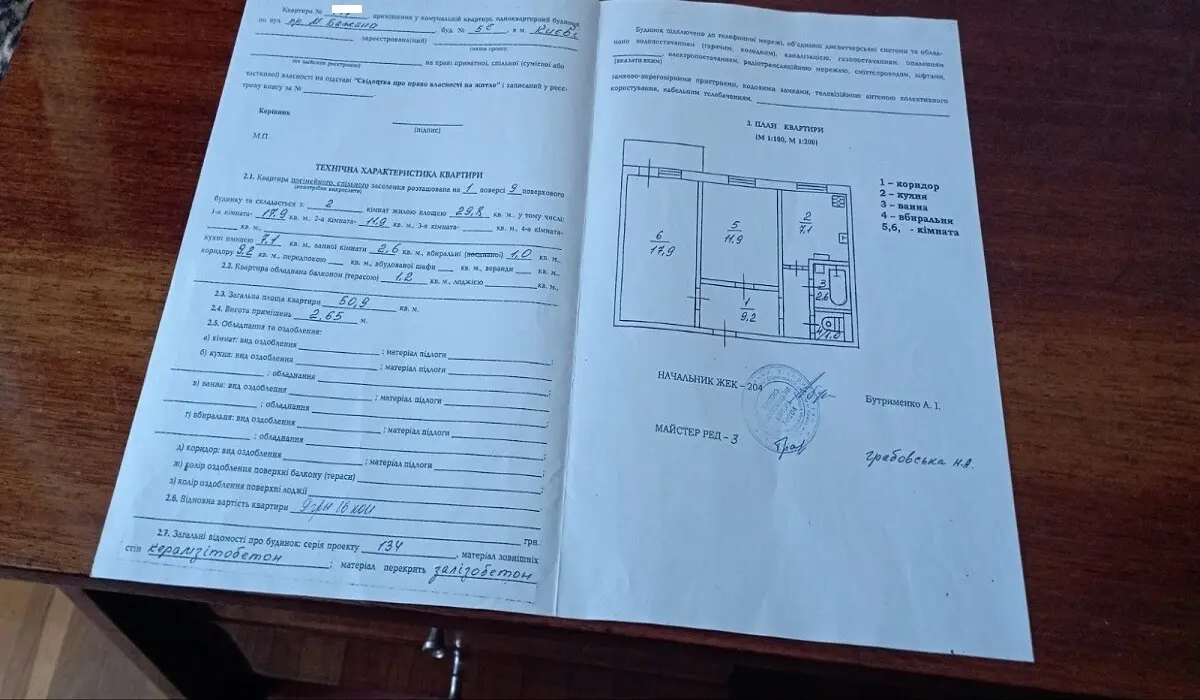 Квартира № , приміщення у комунальній квартирі, одноквартирний будинок
по вул. пр М Бажана , буд. № 5Е , в м. Києві
зареєстрована(ний)
(назва органу,
на праві приватної, спільної (сумісної або
часткової) власності на підставі "Свідоцтва про право власності на житло" і записаний у реєс-
трову книгу за №
Керівник
(підпис)
М.П.
ТЕХНІЧНА ХАРАКТЕРИСТИКА КВАРТИРИ
2.1. Квартира посімейного, спільного заселення розташована на 1 поверсі 9 поверхового
(непотрібне викреслити)
будинку та складається з: 2 кімнат жилою площею 29,8 кв. м., у тому числі:
1-а кімната- 17,9 кв. м., 2-а кімната- 11,9 кв. м., 3-я кімната- кв. м., 4-а кімната-
кв. м.,
кухні площею 7,1 кв. м., ванної кімнати 2,6 кв. м., вбиральні (поєднаної) 1,0 кв. м.,
коридору 9,2 кв. м., передпокою кв. м., вбудованої шафи кв. м., веранди кв. м.,
2.2. Квартира обладнана балконом (терасою) 1,2 кв. м., лоджією кв. м.,
2.3. Загальна площа квартири 50,9 кв. м.
2.4. Висота приміщень 2,65 м.
2.5. Обладнання та оздоблення:
а) кімнат: вид оздоблення ; матеріал підлоги ;
б) кухня: вид оздоблення ; матеріал підлоги
; обладнання ;
в) ванна: вид оздоблення ; матеріал підлоги
; обладнання ;
г) вбиральня: вид оздоблення ; матеріал підлоги
; обладнання ;
д) коридор: вид оздоблення ; матеріал підлоги ;
ж) колір оздоблення поверхні балкону (тераси) ;
з) колір оздоблення поверхні лоджії
2.6. Відновна вартість квартири 9 грн 16 коп
грн.
2.7. Загальні відомості про будинок: серія проекту 134 , матеріал зовнішніх
стін керамзітобетон ; матеріал перекрить залізобетон
Будинок підключено до телефонної мережі, об'єднаних диспетчерської системи та облад-
нано водопостачанням (гарячим, холодним), каналізацією, газопостачанням, опаленням
(вказати яким) електропостачанням, радіотрансляційною мережею, сміттєпроводом, ліфтами,
замково-переговорними пристроями, кодовими замками, телевізійною антеною колективного
користування, кабельним телебаченням,
3. ПЛАН КВАРТИРИ
(М 1:100, М 1:200)
1 – коридор
2 – кухня
3 – ванна
4 – вбиральня
5,6, - кімната
6
17,9
5
11,9
2
7,1
1
9,2
3
2,6
4/1,0
НАЧАЛЬНИК ЖЕК – 204
Бутрименко А. І.
МАЙСТЕР РЕД – 3
Грабовська Н.А.